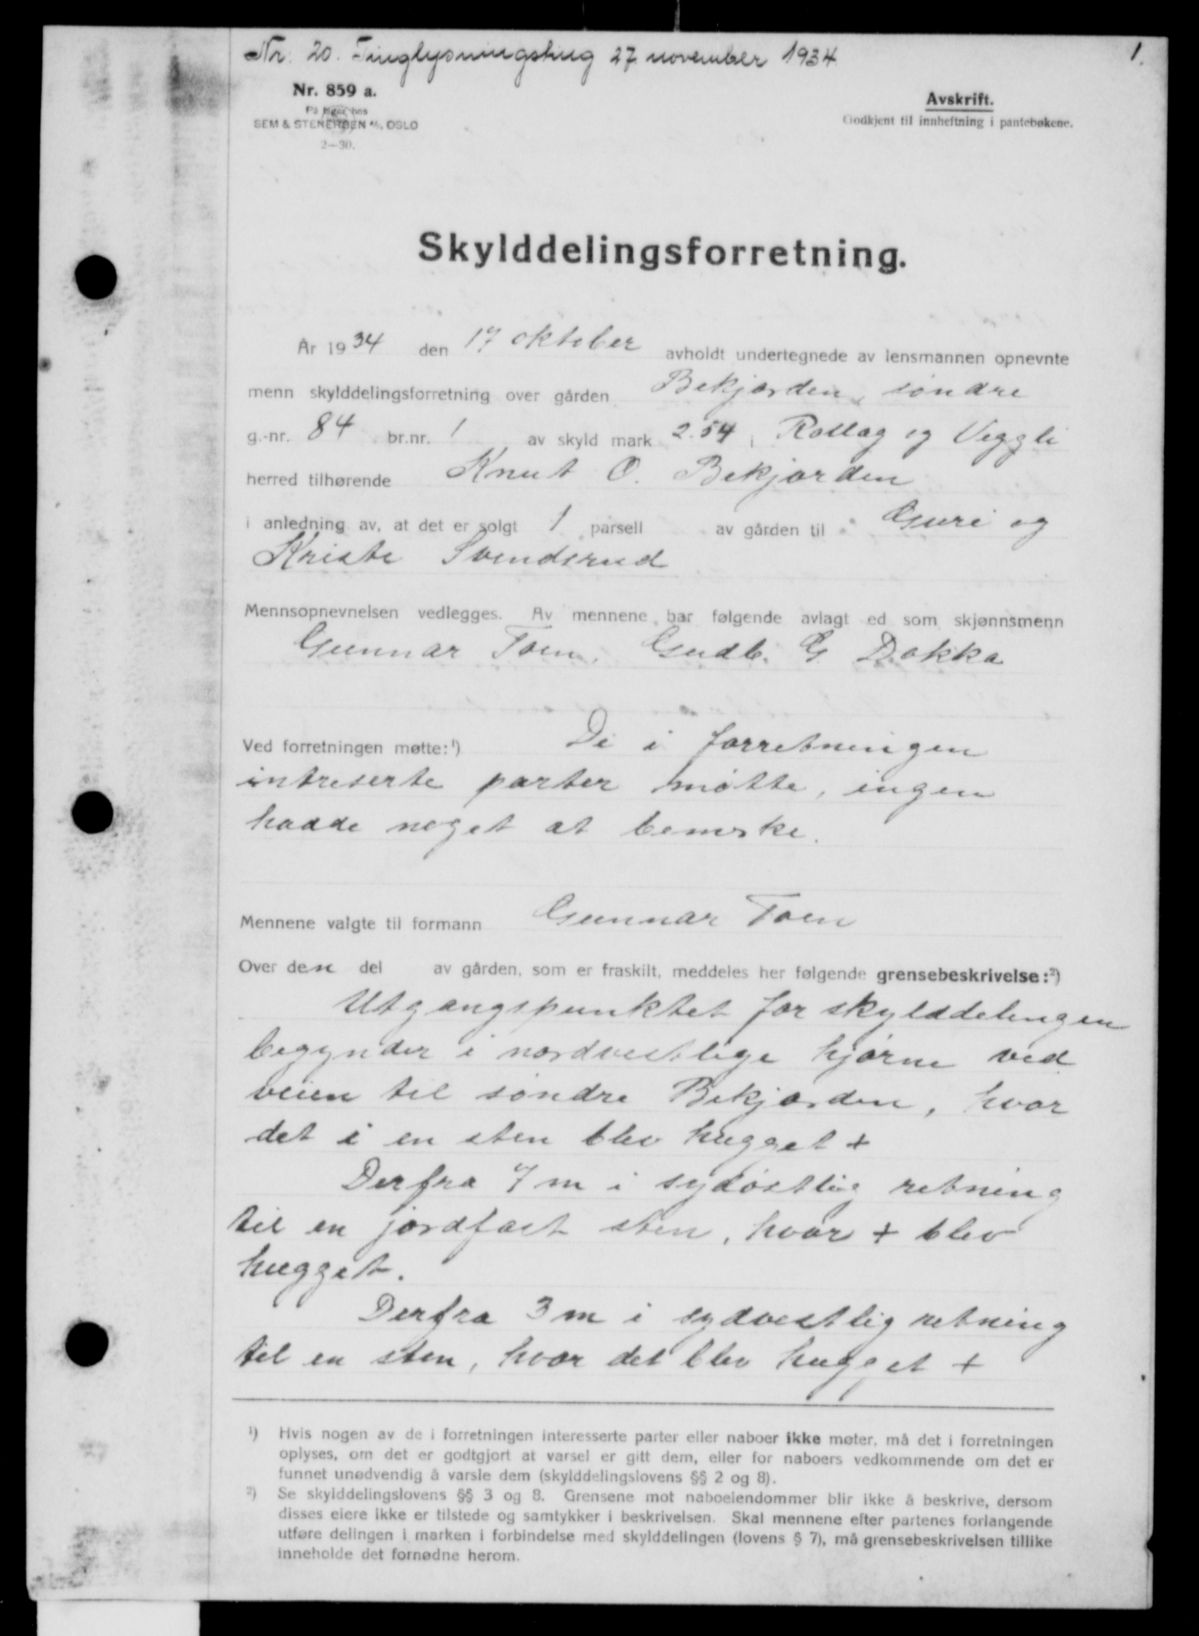 Nr: 20. Tinglysningsting 27 november 1934
1.
Nr. 859 a.
På lager hos
SEM & STENERSEN A/S, OSLO
2—30.
Avskrift.
Godkjent til innheftning i pantebøkene.
Skylddelingsforretning.
År 1934 den 17 oktober avholdt undertegnede av lensmannen opnevnte
menn skylddelingsforretning over gården Bekjorden, søndre
g.-nr. 84 br.nr. 1 av skyld mark 2.54 i Rollag og Veggli
herred tilhørende Knut O. Bekjorden
i anledning av, at det er solgt 1 parsell av gården til Guri og
Kristi Svendsrud
Mennsopnevnelsen vedlegges. Av mennene har følgende avlagt ed som skjønnsmenn
Gunnar Toen, Gudb. G Dokka
Ved forretningen møtte:¹) De i forretningen
intreserte parter møtte, ingen
hadde noget at bemerke.
Mennene valgte til formann Gunnar Toen
Over den del av gården, som er fraskilt, meddeles her følgende grensebeskrivelse:²)
Utgangspunktet for skylddelingen
begynder i nordvestlige hjørne ved
veien til søndre Bekjorden, hvor
det i en sten blev hugget +
Derfra 7 m i sydøstlig retning
til en jordfast sten, hvor + blev
hugget.
Derfra 3 m i sydvestlig retning
til en sten, hvor det blev hugget +
¹) Hvis nogen av de i forretningen interesserte parter eller naboer ikke møter, må det i forretningen
oplyses, om det er godtgjort at varsel er gitt dem, eller for naboers vedkommende om det er
funnet unødvendig å varsle dem (skylddelingslovens §§ 2 og 8).
²) Se skylddelingslovens §§ 3 og 8. Grensene mot naboeiendommer blir ikke å beskrive, dersom
disses eiere ikke er tilstede og samtykker i beskrivelsen. Skal mennene efter partenes forlangende
utføre delingen i marken i forbindelse med skylddelingen (lovens § 7), må grensebeskrivelsen tillike
inneholde det fornødne herom.